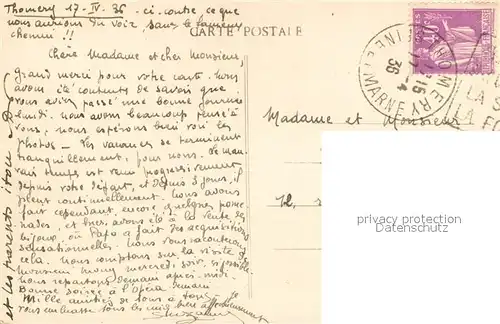 Thomery 17-IV-36 - ci-contre, ce que
nous aurions du voir sans le fameux
chemin !!
CARTE POSTALE
Chère Madame et cher Monsieur,
Grand merci pour votre carte. Nous
avons été contents de savoir que
vous aviez passé une bonne journée
lundi. Nous avons beaucoup pensé à
vous, nous espérons bien voir les
photos - Les vacances se terminent
tranquillement, pour nous. Le mau-
vais temps est venu progressivement
depuis votre départ, et depuis 3 jours, il
pleut continuellement. Nous avons
fait cependant encore quelques prome-
nades, et hier, avons été à la vente des
bijoux où Papa a fait des acquisitions
sensationnelles. Nous vous raconterons
cela. Nous comptons sur la visite de
Monsieur mercredi soir, si possible.
Nous repartons demain après-midi.
Bonne soirée à l'Opéra demain
Mille amitiés de tous à tous
vous embrasse tous les
et les parents
THOMERY
SEINE ET MARNE
15
17-4
36
LA
LA FO
Madame et Monsieur
privacy protection
watermark